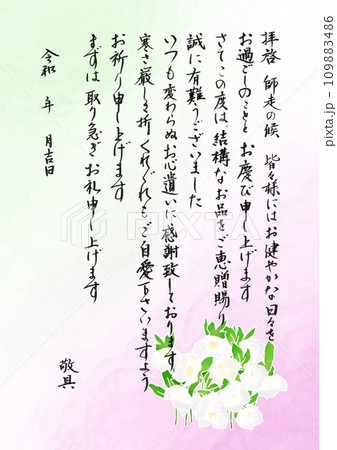 拝啓 師走の候 皆々様にはお健やかな日々を
お過ごしのことと お慶び申し上げます
さてこの度は 結構なお品をご恵贈賜り
誠に有難うございました
いつも変わらぬお心遣いに感謝致しております
寒さ厳しき折 くれぐれもご自愛下さいますよう
お祈り申し上げます
まずは 取り急ぎ お礼申し上げます
敬具
令和 年 月吉日
PIXTA
pixta.jp - 109883486